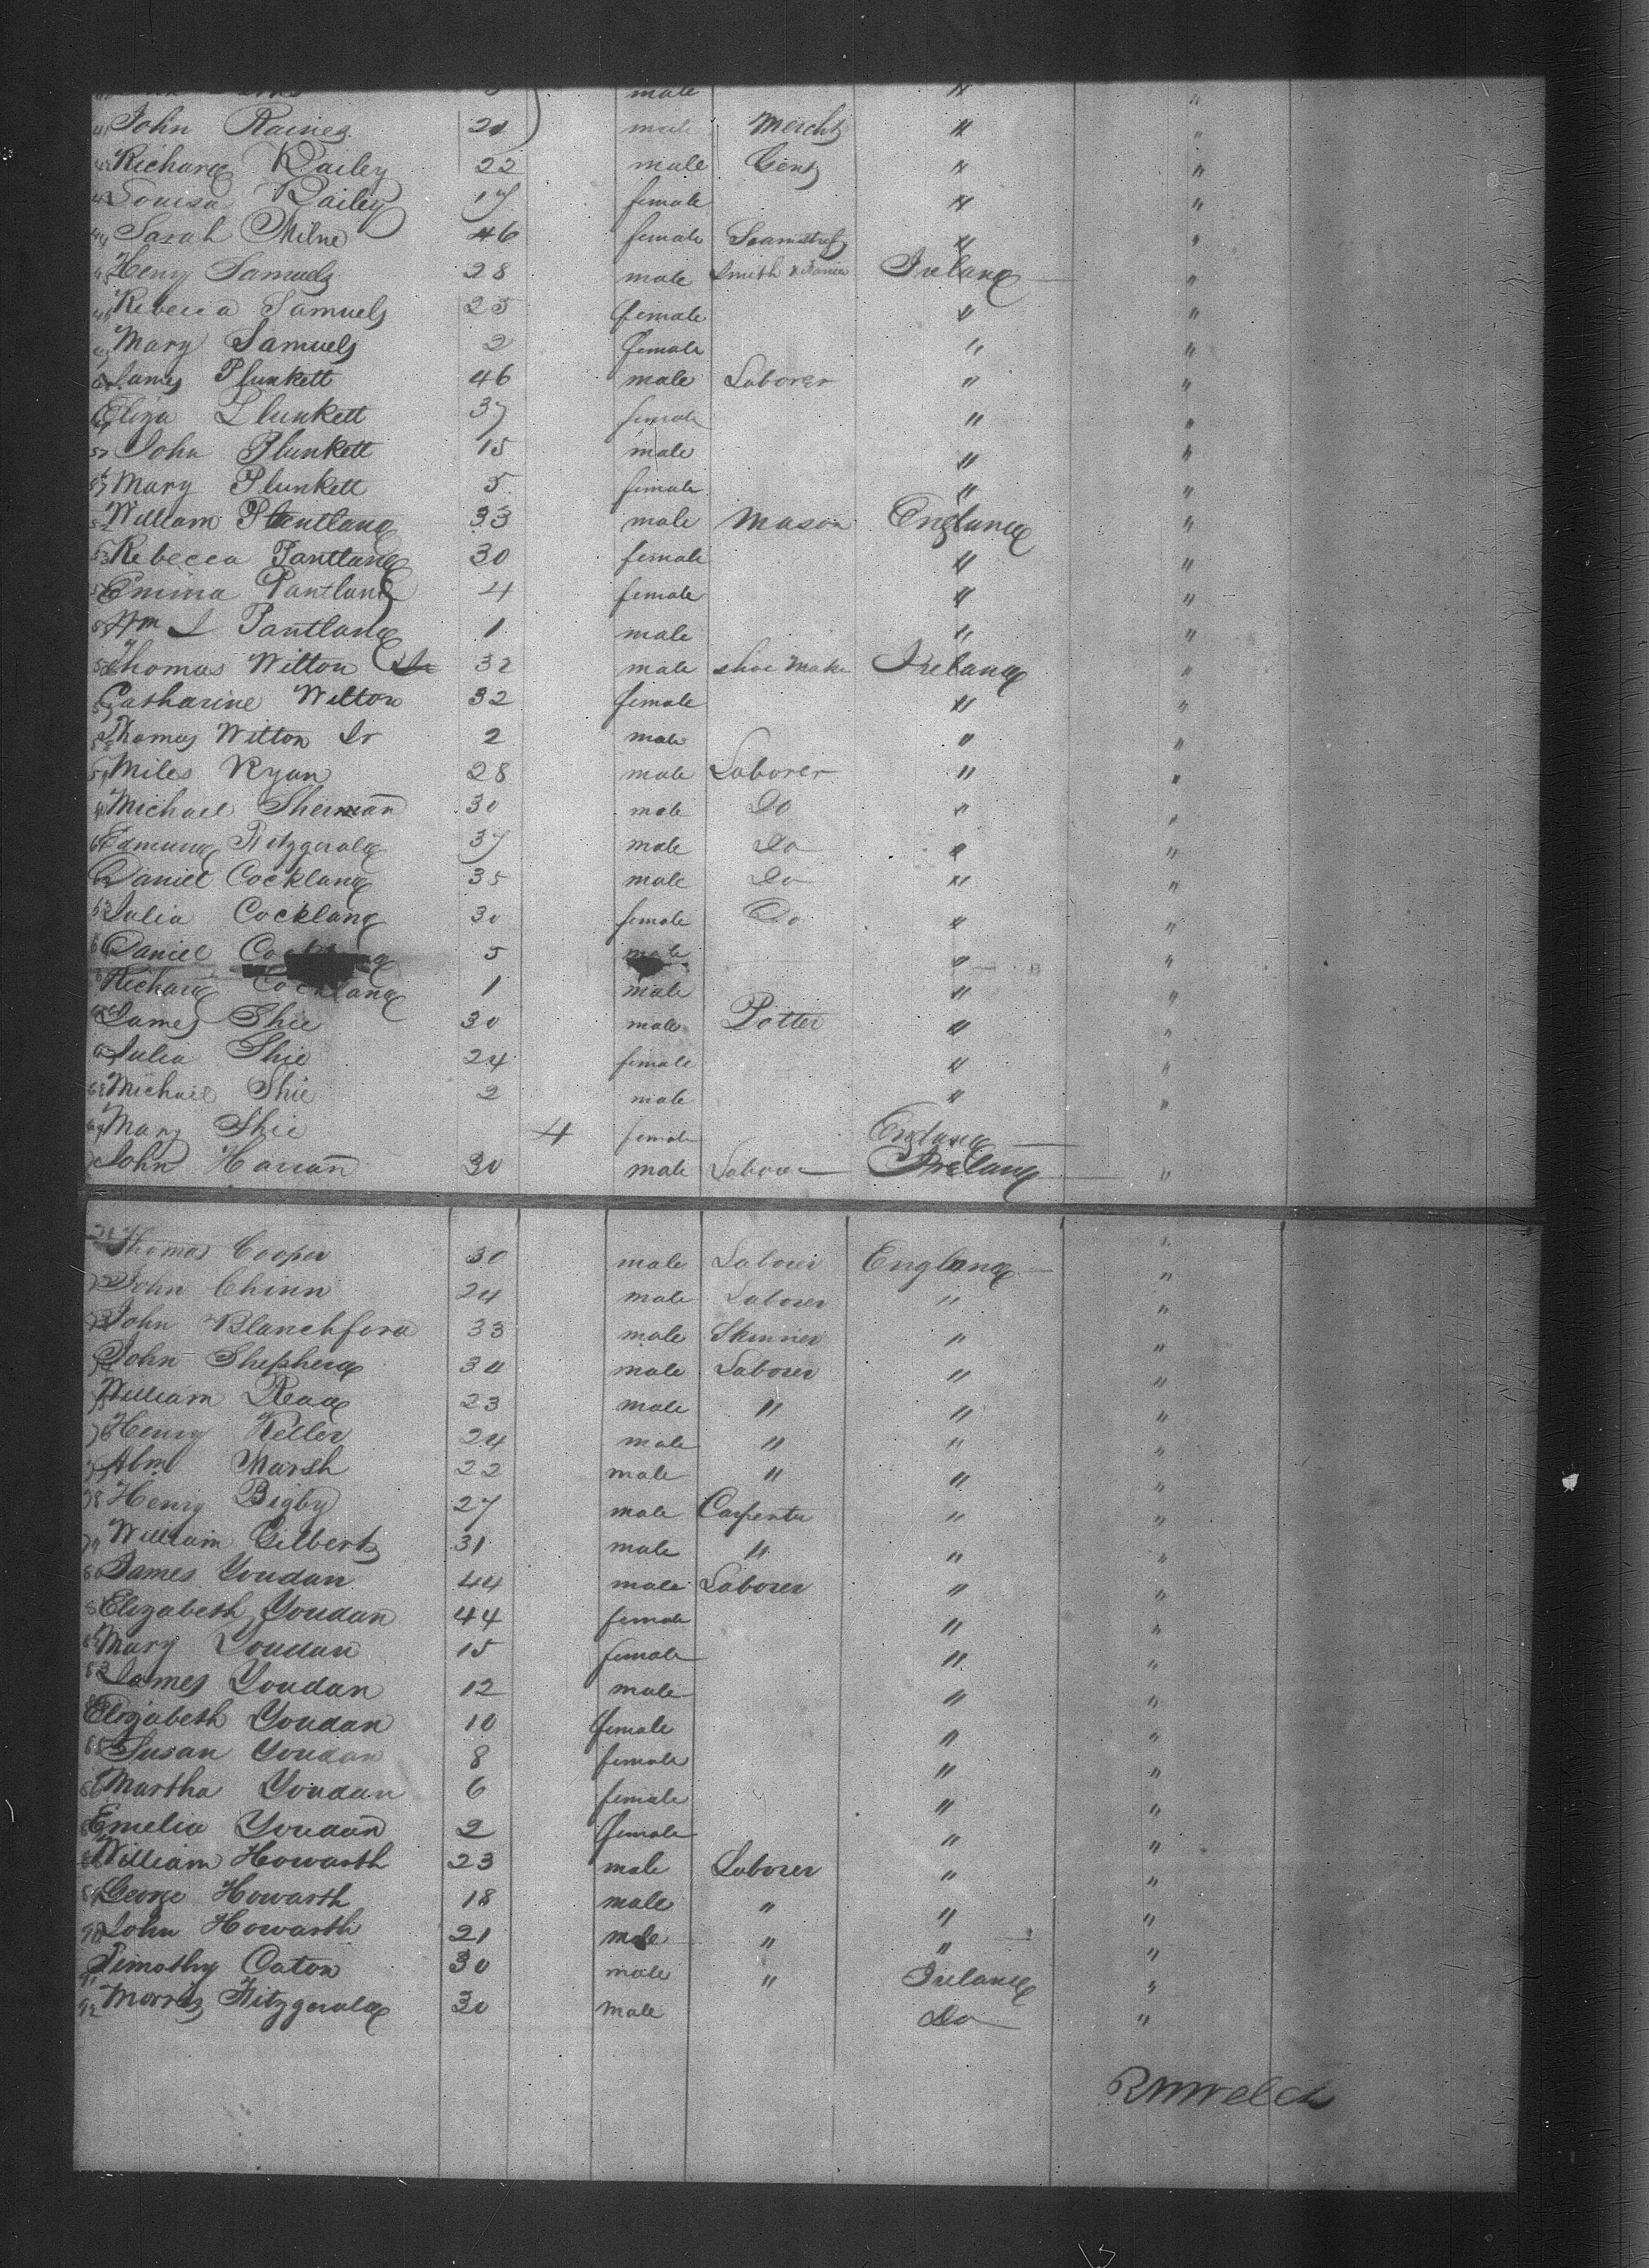 male "
41 John Raines 20 male Mercht " "
42 Richard Railey 22 male Gent " "
43 Louisa Railey 17 female " "
44 Sarah Milne 46 female Seamstress " "
45 Henry Samuels 28 male Smith & Ireland "
46 Rebecca Samuels 25 female " "
Mary Samuels 2 female " "
James Plunkett 46 male Laborer " "
Eliza Plunkett 37 female " "
50 John Plunkett 15 male " "
51 Mary Plunkett 5 female " "
52 William Pantland 33 male Mason England "
53 Rebecca Pantland 30 female " "
54 Emma Pantland 4 female " "
55 Wm L Pantland 1 male " "
56 Thomas Wilton 32 male Shoe Maker Ireland "
57 Catharine Wilton 32 female " "
58 Thomas Wilton Jr 2 male " "
59 Miles Ryan 28 male Laborer " "
60 Michael Sherman 30 male Do " "
61 Edmund Fitzgerald 37 male Do " "
62 Daniel Cockland 35 male Do " "
63 Julia Cockland 30 female Do " "
64 Daniel 5 male " "
65 Richard Cockland 1 male " "
66 James Shie 30 male Potter " "
67 Julia Shie 24 female " "
68 Michael Shie 2 male " "
69 Mary Shie 4 female England
70 John Harran 30 male Labour Ireland "
71 Thomas Cooper 30 male Laborer England "
72 John Chinn 24 male Laborer " "
73 John Blanchford 33 male Skinner " "
74 John Shepherd 34 male Laborer " "
75 William Read 23 male " " "
76 Henry Keller 24 male " " "
77 Abm Marsh 22 male " " "
78 Henry Bigby 27 male Carpenter " "
79 William Gilbert 31 male " " "
80 James Youdan 44 male Laborer " "
81 Elizabeth Youdan 44 female " "
82 Mary Youdan 15 female " "
83 James Youdan 12 male " "
84 Elizabeth Youdan 10 female " "
85 Susan Youdan 8 female " "
86 Martha Youdan 6 female " "
87 Emelia Youdan 2 female " "
88 William Howarth 23 male Laborer " "
89 George Howarth 18 male " " "
90 John Howarth 21 male " " "
91 Timothy Caton 30 male " Ireland "
92 Morris Fitzgerald 30 male Do "
RM Welch